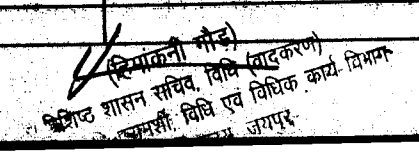 (हिमांकनी गौड़)
विशिष्ट शासन सचिव, विधि (वादकरण)
विधि एवं विधिक कार्य विभाग
जयपुर